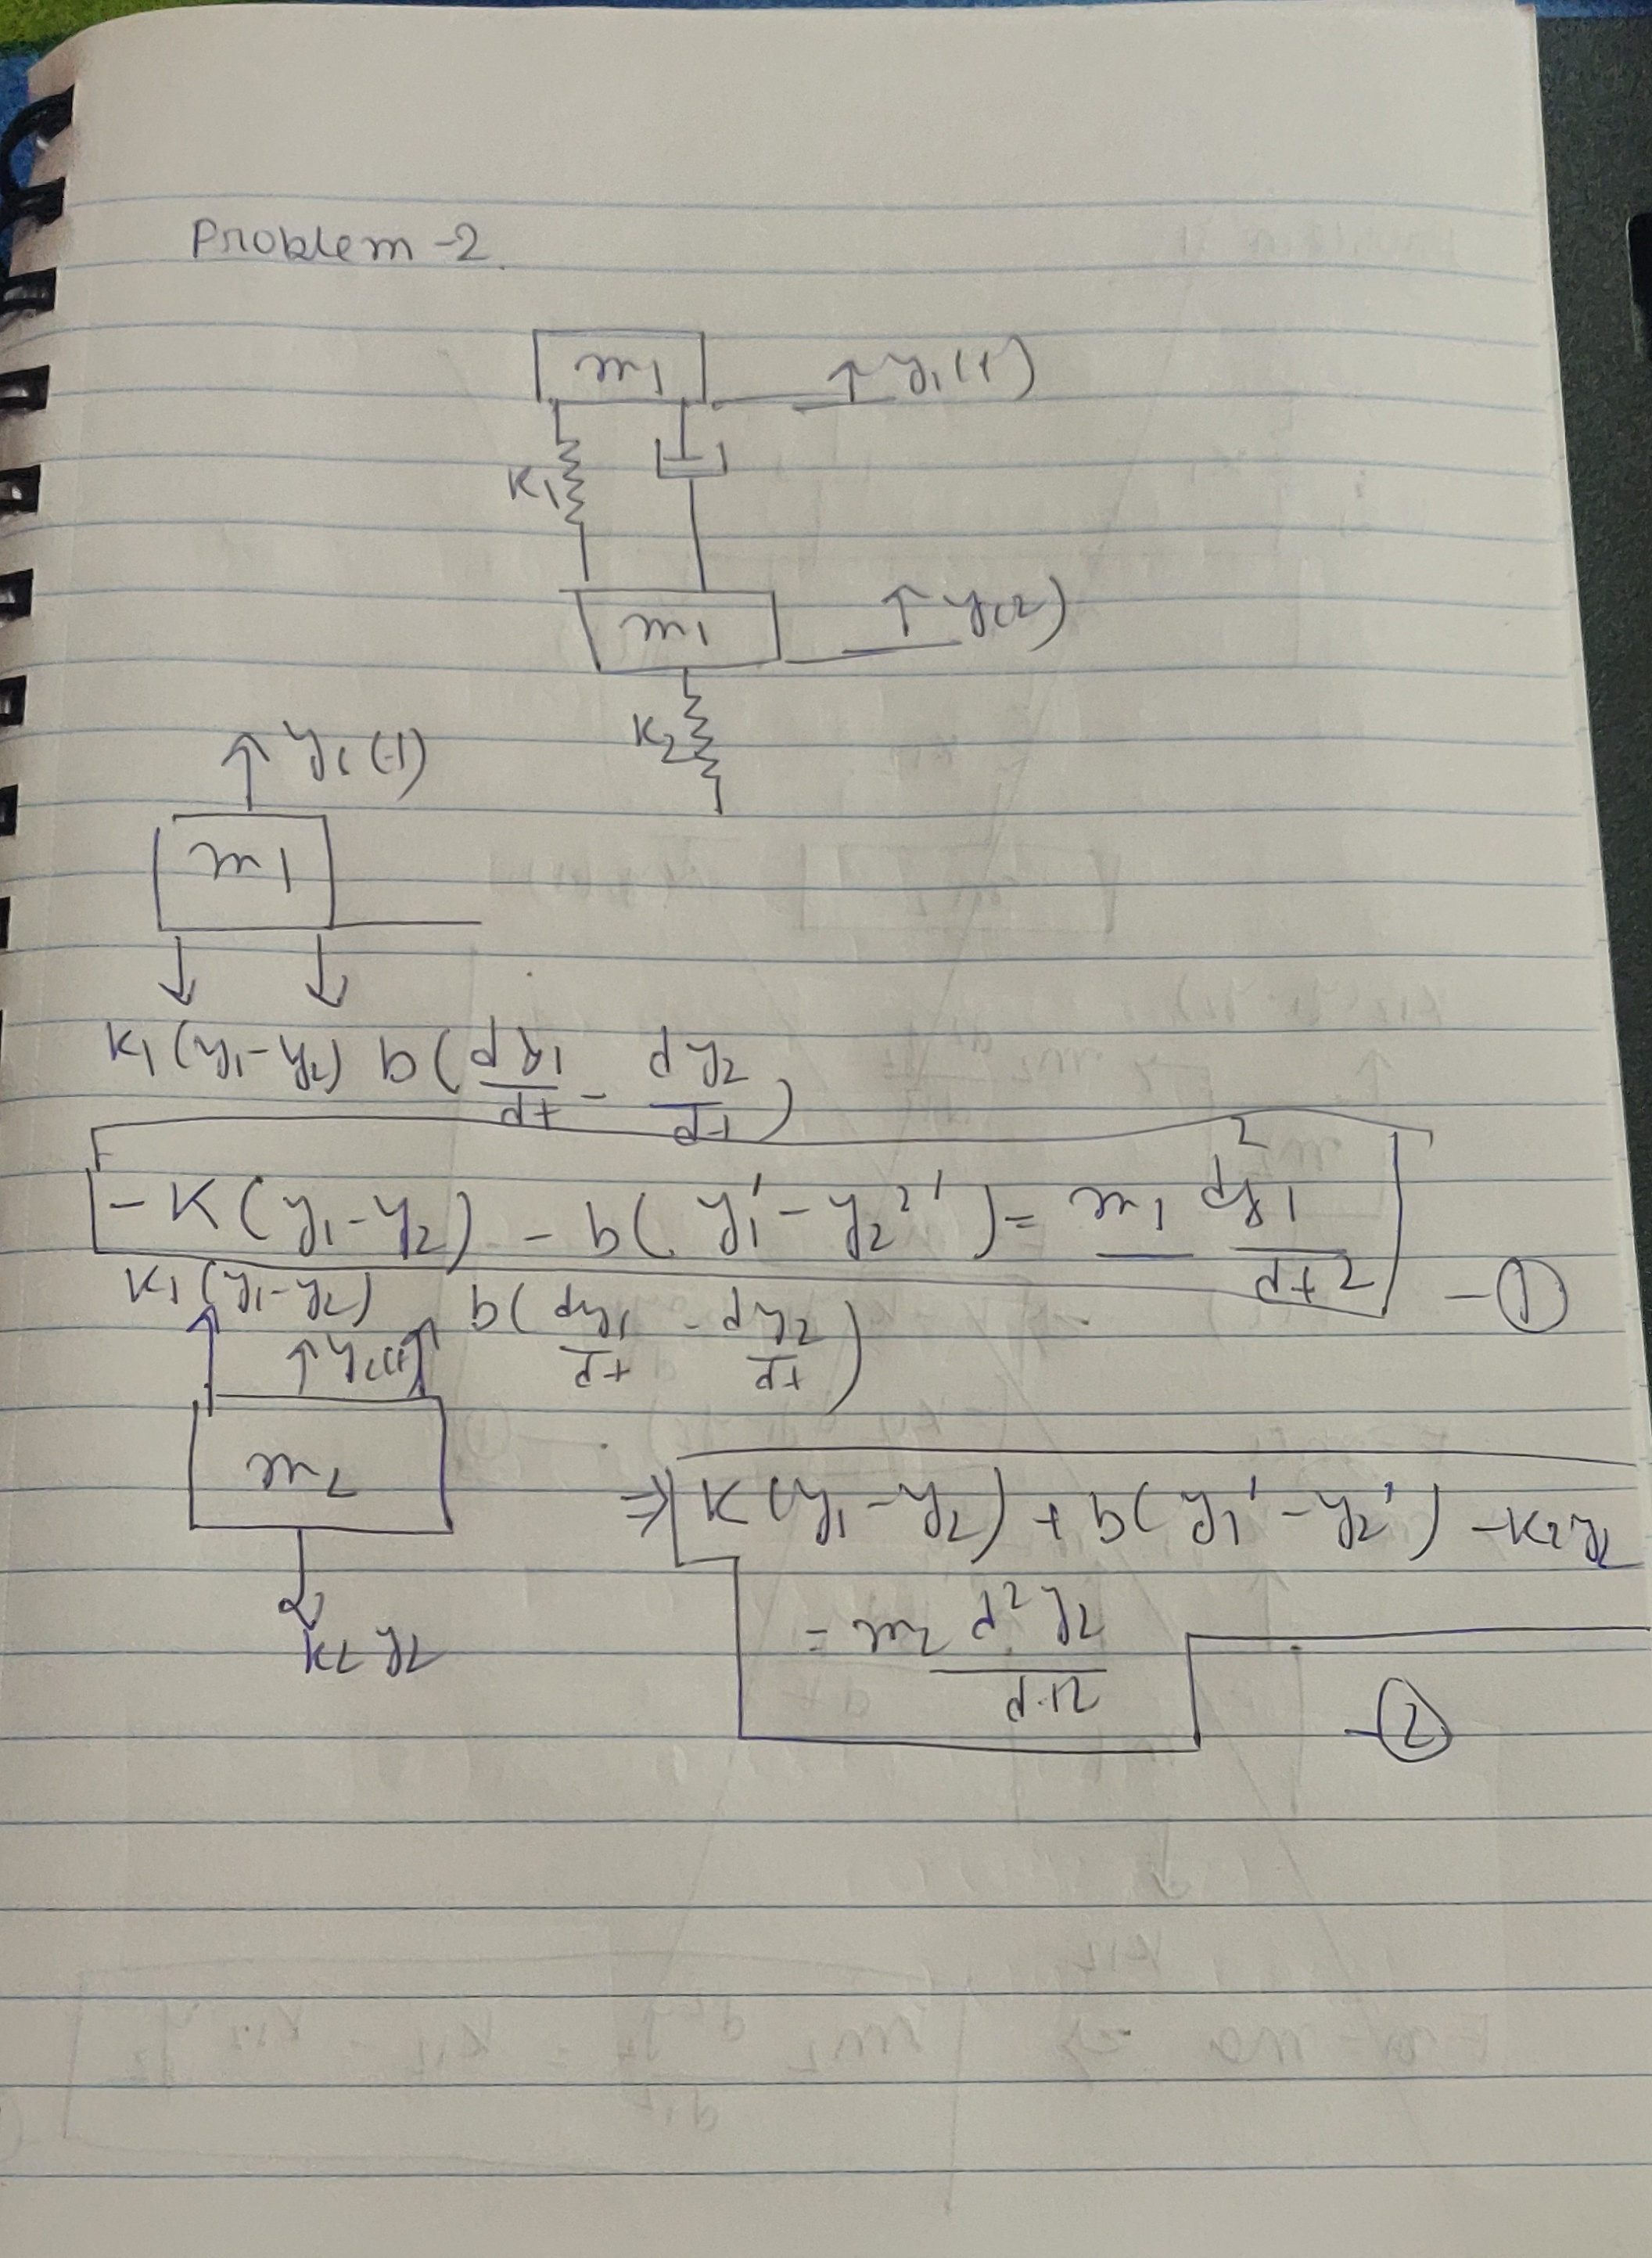 Problem-2.
m1
↑ y1(t)
K1
m1
↑ y(2)
K2
↑ y1(t)
m1
K1(y1-y2) b(dy1/dt - dy2/dt)
-K(y1-y2) - b(y1' - y2') = m1 d²y1/dt² - ①
K1(y1-y2) b(dy1/dt - dy2/dt)
m2
⇒ K(y1-y2) + b(y1' - y2') - K2y2
= m2 d²y2/dt² - ②
K2 y2